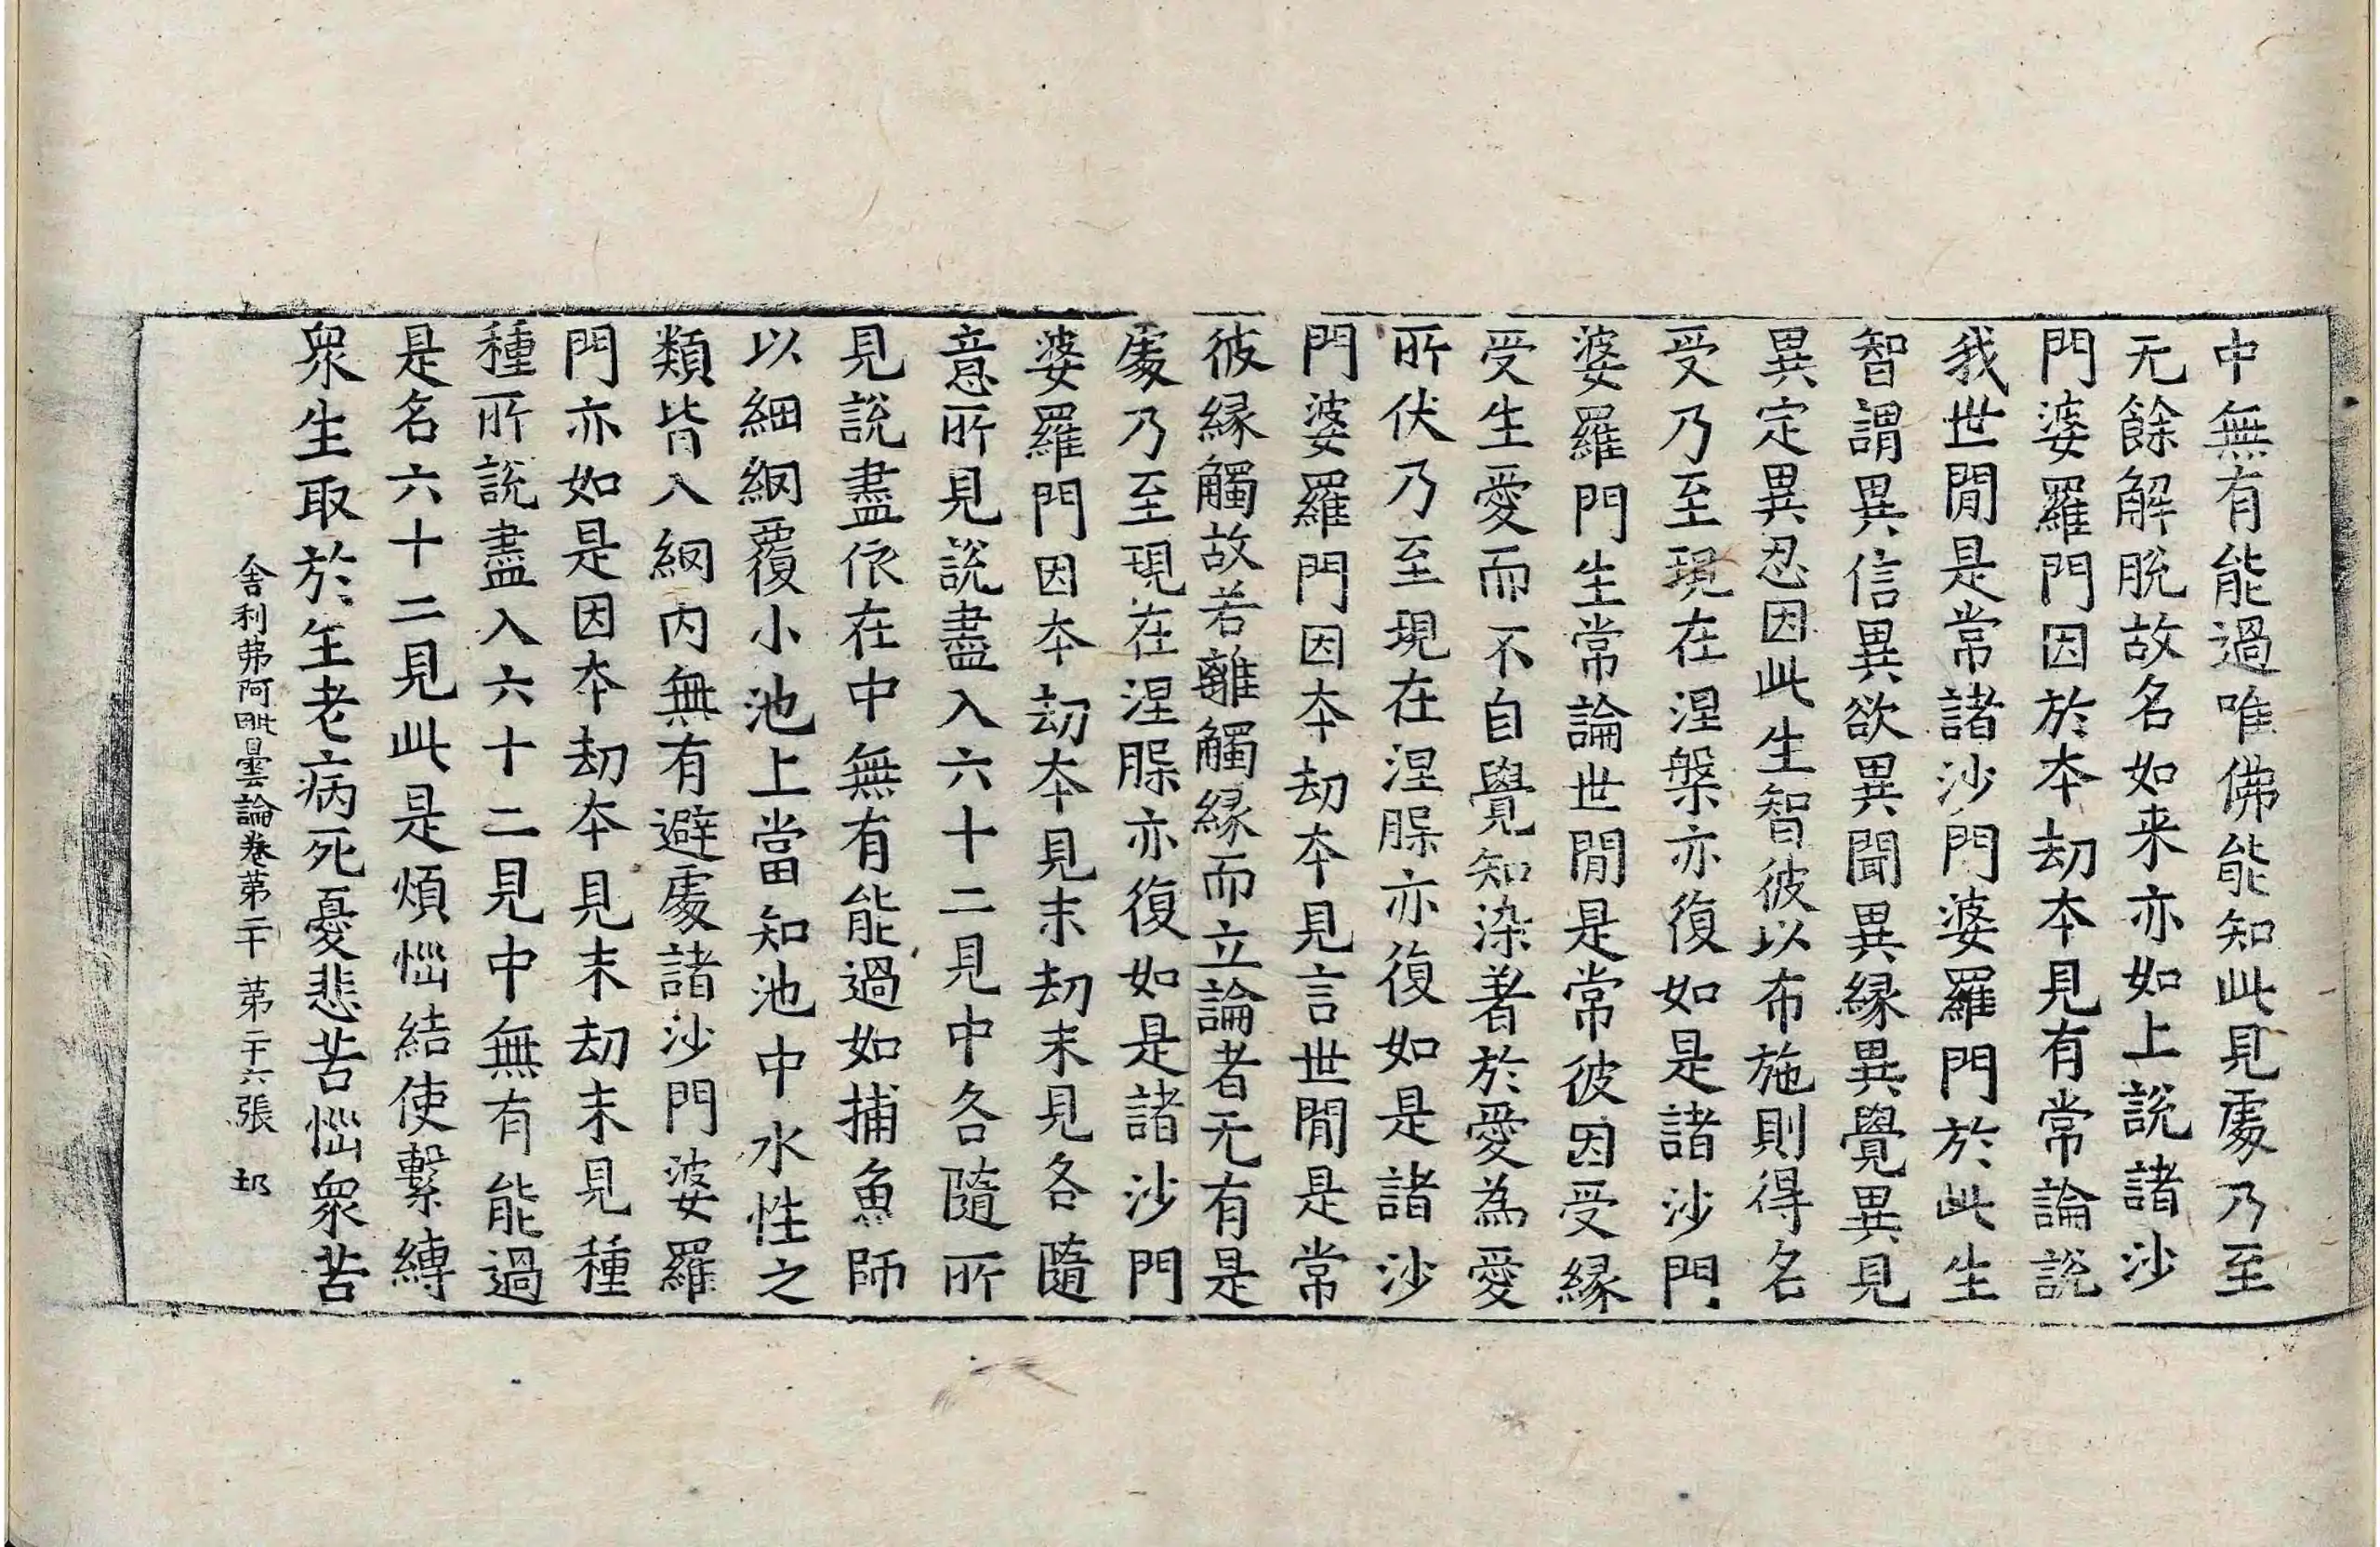 中無有能過唯佛能知此見處乃至
无餘解脫故名如来亦如上說諸沙
門婆羅門因於本劫本見有常論說
我世閒是常諸沙門婆羅門於此生
智謂異信異欲異聞異緣異覺異見
異定異忍因此生智彼以布施則得名
受乃至現在涅槃亦復如是諸沙門
婆羅門生常論世閒是常彼因受緣
受生愛而不自覺知染著於愛為愛
所伏乃至現在涅槃亦復如是諸沙
門婆羅門因本劫本見言世閒是常
彼緣觸故若離觸緣而立論者无有是
處乃至現在涅槃亦復如是諸沙門
婆羅門因本劫本見末劫末見各隨
意所見說盡入六十二見中各隨所
見說盡依在中無有能過如捕魚師
以細網覆小池上當知池中水性之
類皆入網內無有避處諸沙門婆羅
門亦如是因本劫本見末劫末見種
種所說盡入六十二見中無有能過
是名六十二見此是煩惱結使繫縛
眾生取於生老病死憂悲苦惱眾苦
舍利弗阿毗曇論卷第二十 第二十六張